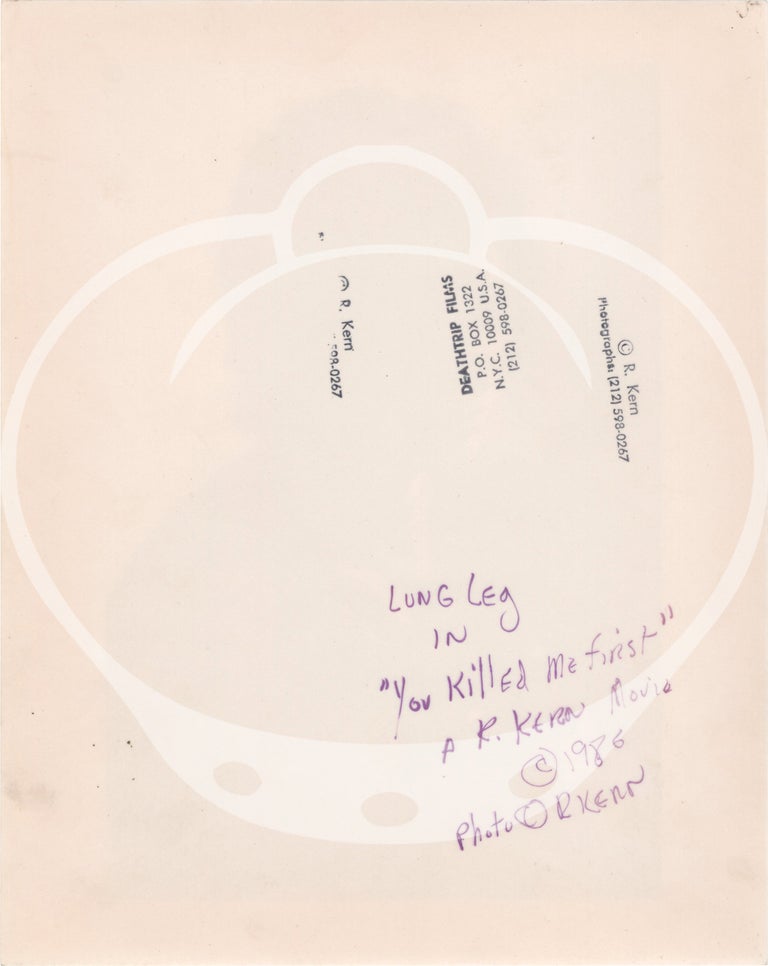 © R. Kern
598-0267
DEATHTRIP FILMS
P.O. BOX 1322
N.Y.C. 10009 U.S.A.
(212) 598-0267
© R. Kern
Photographs: (212) 598-0267
LUNG Leg
IN
"You Killed Me first"
A R. KERN Movie
© 1986
Photo © R KERN